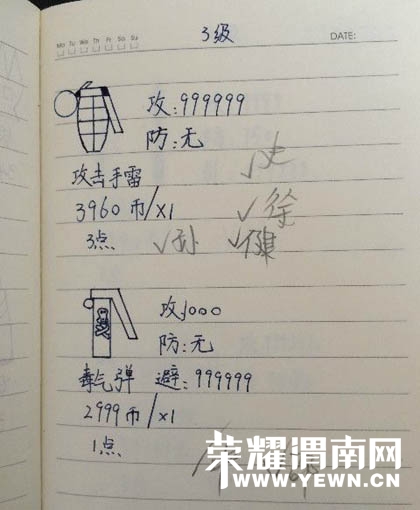 3级
Mo Tu We Th Fr Sa Su
DATE:
攻:999999
防:无
攻击手雷
3960币/X1
3点
√孙
√徐
√健
攻1000
防:无
毒气弹 避:999999
2999币/X1
1点
荣耀渭南网
WWW.YEWN.CN